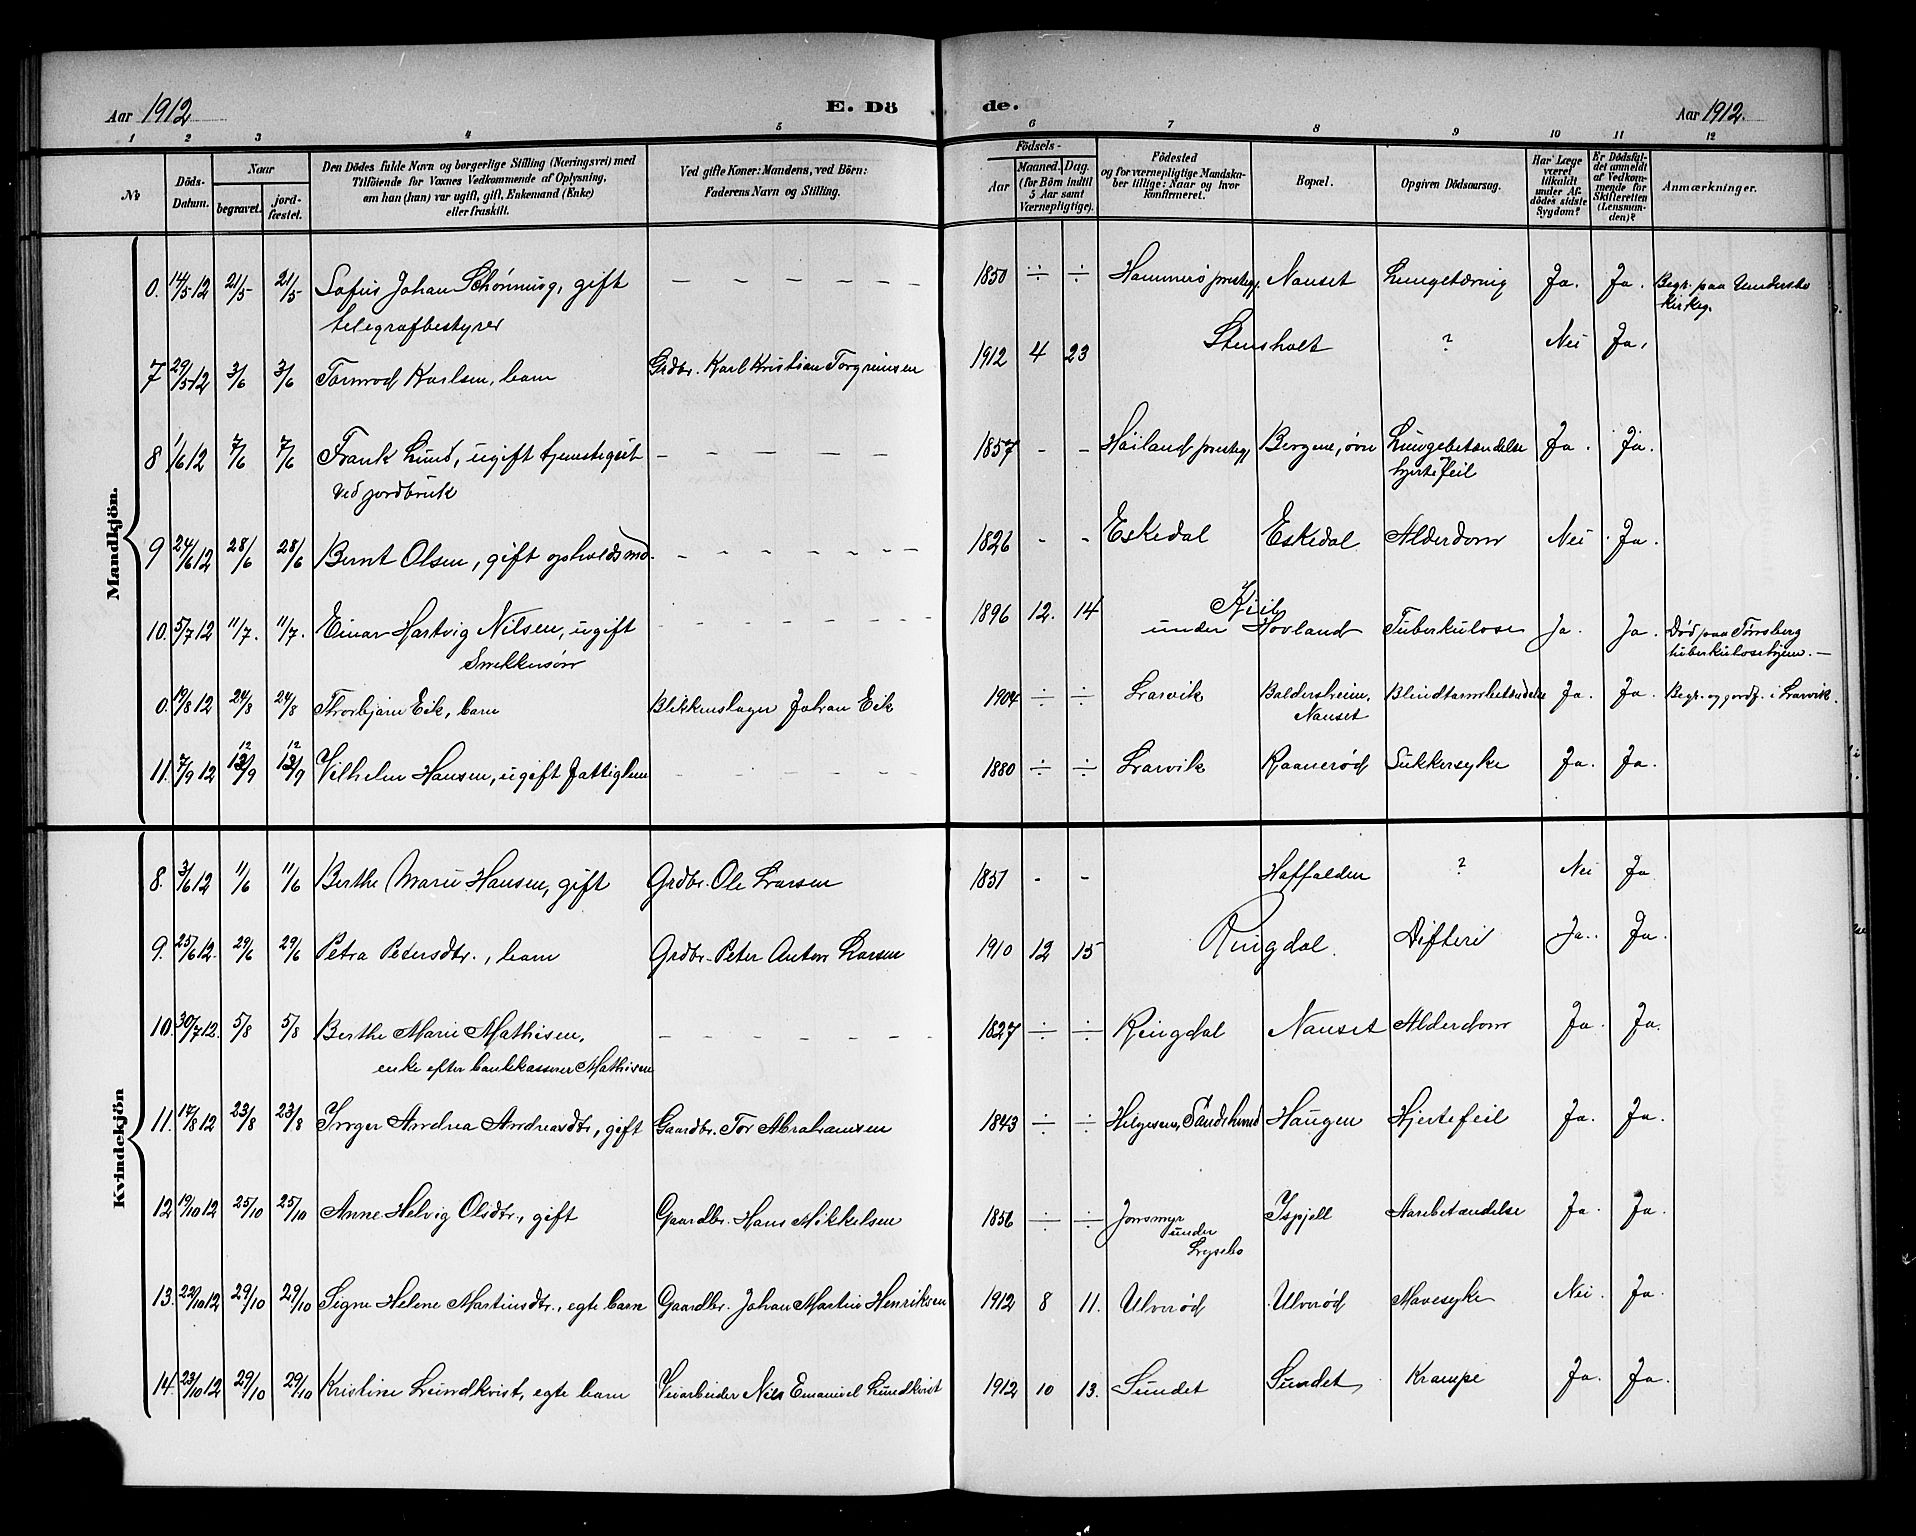 Aar 1912
E. Dö de.
Aar 1912.
1 2 3 4 5 6 7 8 9 10 11 12
No
Döds-Datum.
Naar
begravet.
jord-fæstet.
Den Dödes fulde Navn og borgerlige Stilling (Næringsvei) med
Tilföiende for Voxnes Vedkommende af Oplysning,
om han (hun) var ugift, gift, Enkemand (Enke)
eller fraskilt.
Ved gifte Koner: Mandens, ved Börn:
Faderens Navn og Stilling.
Födsels-
Aar
Maaned. Dag.
(for Börn indtil
5 Aar samt
Værnepligtige).
Födested
og for værnepligtige Mandska-
ber tillige: Naar og hvor
konfirmeret.
Bopæl.
Opgiven Dödsaarsag.
Har Læge
været
tilkaldt
under Af-
dödes sidste
Sygdom?
Er Dödsfal-
det anmeldt
af Vedkom-
mende for
Skifteretten
(Lensman-
den)?
Anmærkninger.
Mandkjön.
0. 14/5 12 21/5 21/5 Sofus Johan Schønning, gift – – – – – – 1850 ÷ ÷ Hammerø prestegj. Nanset Lungetæring Ja. Ja. Begr. paa Undersbo
telegrafbestyrer kirkeg.
7 29/5 12 3/6 3/6 Tormod Karlsen, barn Grdbr. Karl Kristian Torgrimsen 1912 4 23 Stensholt ? Nei Ja.
8 1/6 12 7/6 7/6 Frank Lund, ugift tjenstegut – – – – – – 1857 - - Høiland prestegj. Bergene, øvre Lungebetændelse Ja. Ja.
ved jordbruk hjertefeil
9 24/6 12 28/6 28/6 Bernt Olsen, gift opholdsmd. – – – – – – 1826 - - Eskedal Eskedal Alderdom Nei Ja.
10. 5/7 12 11/7. 11/7. Einar Hartvig Nilsen, ugift – – – – – – 1896 12. 14 Kiil
under Hovland Tuberkulose Ja. Ja. Død paa Tønsberg
Snekkersøn tuberkulosehjem. —
0. 19/8 12 24/8 24/8 Thorbjørn Eik, barn Blikkenslager Johan Eik 1904 ÷ ÷ Larvik Baldersheim, Blindtarmbetændelse Ja. Ja. Begr. og jordf. i Larvik.
Nanset
11. 7/9 12 12/9 12/9 Vilhelm Hansen, ugift fattiglem – – – – – – 1880 ÷ ÷ Larvik Raanerød Sukkersyke Ja. Ja.
Kvindekjön
8. 3/6 12 11/6 11/6 Berthe Marie Hansen, gift Grdbr. Ole Larsen 1851 - - Haffalden ? Nei Ja
9. 25/6 12. 29/6 29/6 Petra Petersdtr., barn Grdbr. Peter Anton Larsen 1910 12 15 Ringdal. Difteri Ja. Ja.
10. 30/7 12. 5/8 5/8 Berthe Marie Mathisen, – – – – – – 1827 ÷ ÷ Ringdal Nanset Alderdom Ja. Ja.
enke efter bankkasserer Mathisen
11. 17/8 12 23/8 23/8 Inger Andrea Andreasdtr, gift Gaardbr. Tor Abrahamsen 1843 ÷ ÷ Sandshered Haugen Hjertefeil Ja. Ja.
12 19/10 12 25/10 25/10 Anne Helvig Olsdtr., gift Gaardbr. Hans Mikkelsen 1856 ÷ ÷ Jonsmyr Ispjell Aarebetændelse Ja. Ja.
under
Lysebo
13. 22/10 12 29/10 29/10 Signe Helene Martinsdtr., egte barn Gaardbr. Johan Martin Henriksen 1912 8 11. Ulverød Ulverød Mavesyke Nei. Ja.
14. 23/10 12 29/10 29/10 Kristine Lundkvist, egte barn Veiarbeider Nils Emanuel Lundkvist 1912 10 13. Sundet Sundet Krampe Ja. Ja.